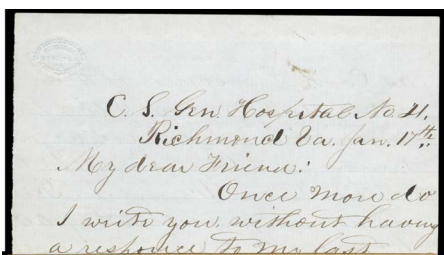 C. S. Gen. Hospital No. 21.
Richmond Va. Jan. 17th.
My dear Friend:
Once more do
I write you, without having
a responce to my last